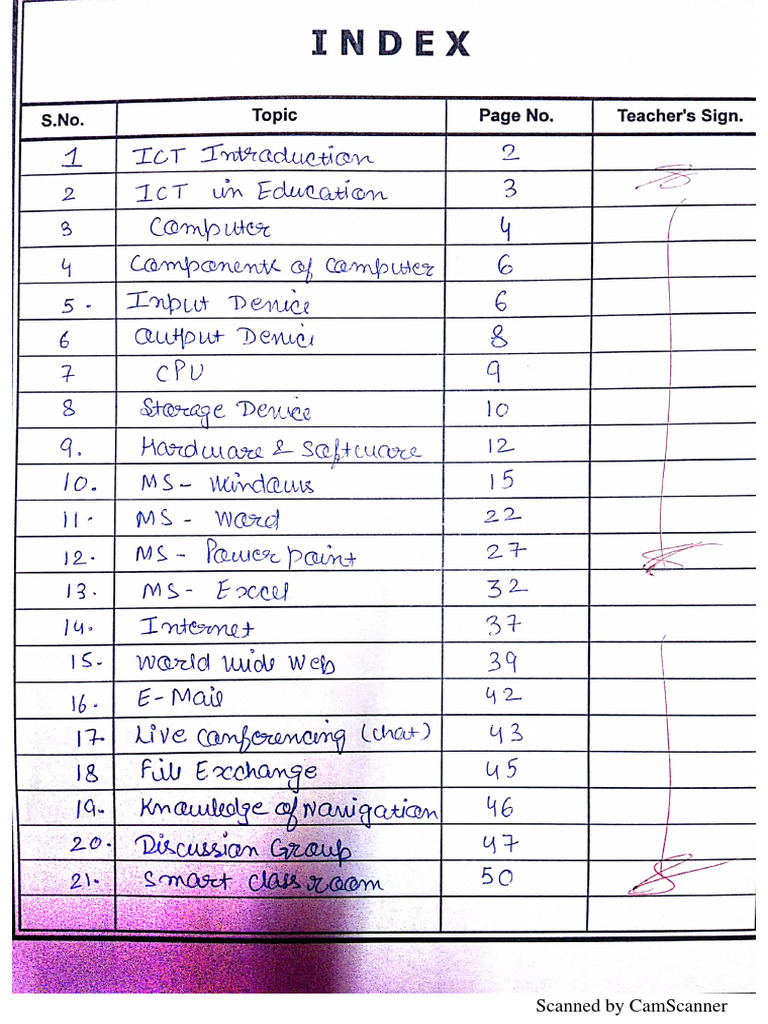 INDEX
S.No. Topic Page No. Teacher's Sign.
1 ICT Intraduction 2
2 ICT in Education 3
3 Computer 4
4 Components of Computer 6
5. Input Device 6
6 Output Device 8
7 CPU 9
8 Storage Device 10
9. Hardware & Software 12
10. MS - Windows 15
11. MS - Word 22
12. MS - Power point 27
13. MS - Excel 32
14. Internet 37
15. World wide Web 39
16. E-Mail 42
17. Live Conferencing (chat) 43
18 File Exchange 45
19. Knowledge of Navigation 46
20. Discussion Group 47
21. Smart Class room 50
Scanned by CamScanner